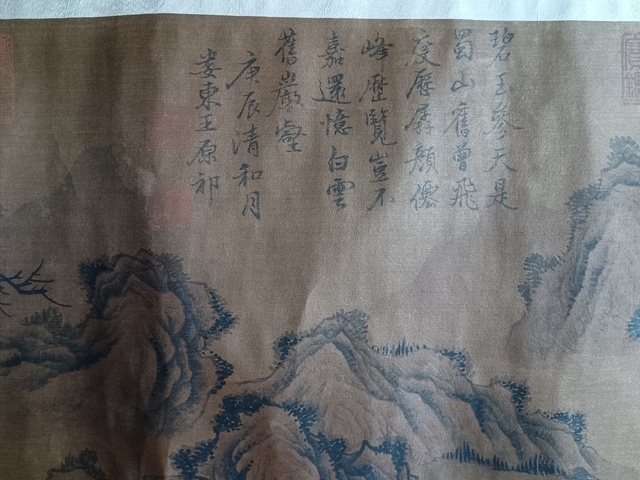 碧玉參天是
蜀山舊曾飛
度歷孱顏僊
峰歷覽豈不
嘉還憶白雲
舊巖壑
庚辰清和月
婁東王原祁